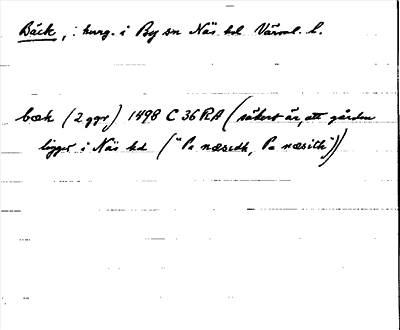 Bäck, : herrg. i By sn Näs hd Värml. l.
bæk (2 ggr) 1498 C 36 RA (säkert är, att gården
ligger i Näs hd ("Pa næsedh, Pa næsith"))